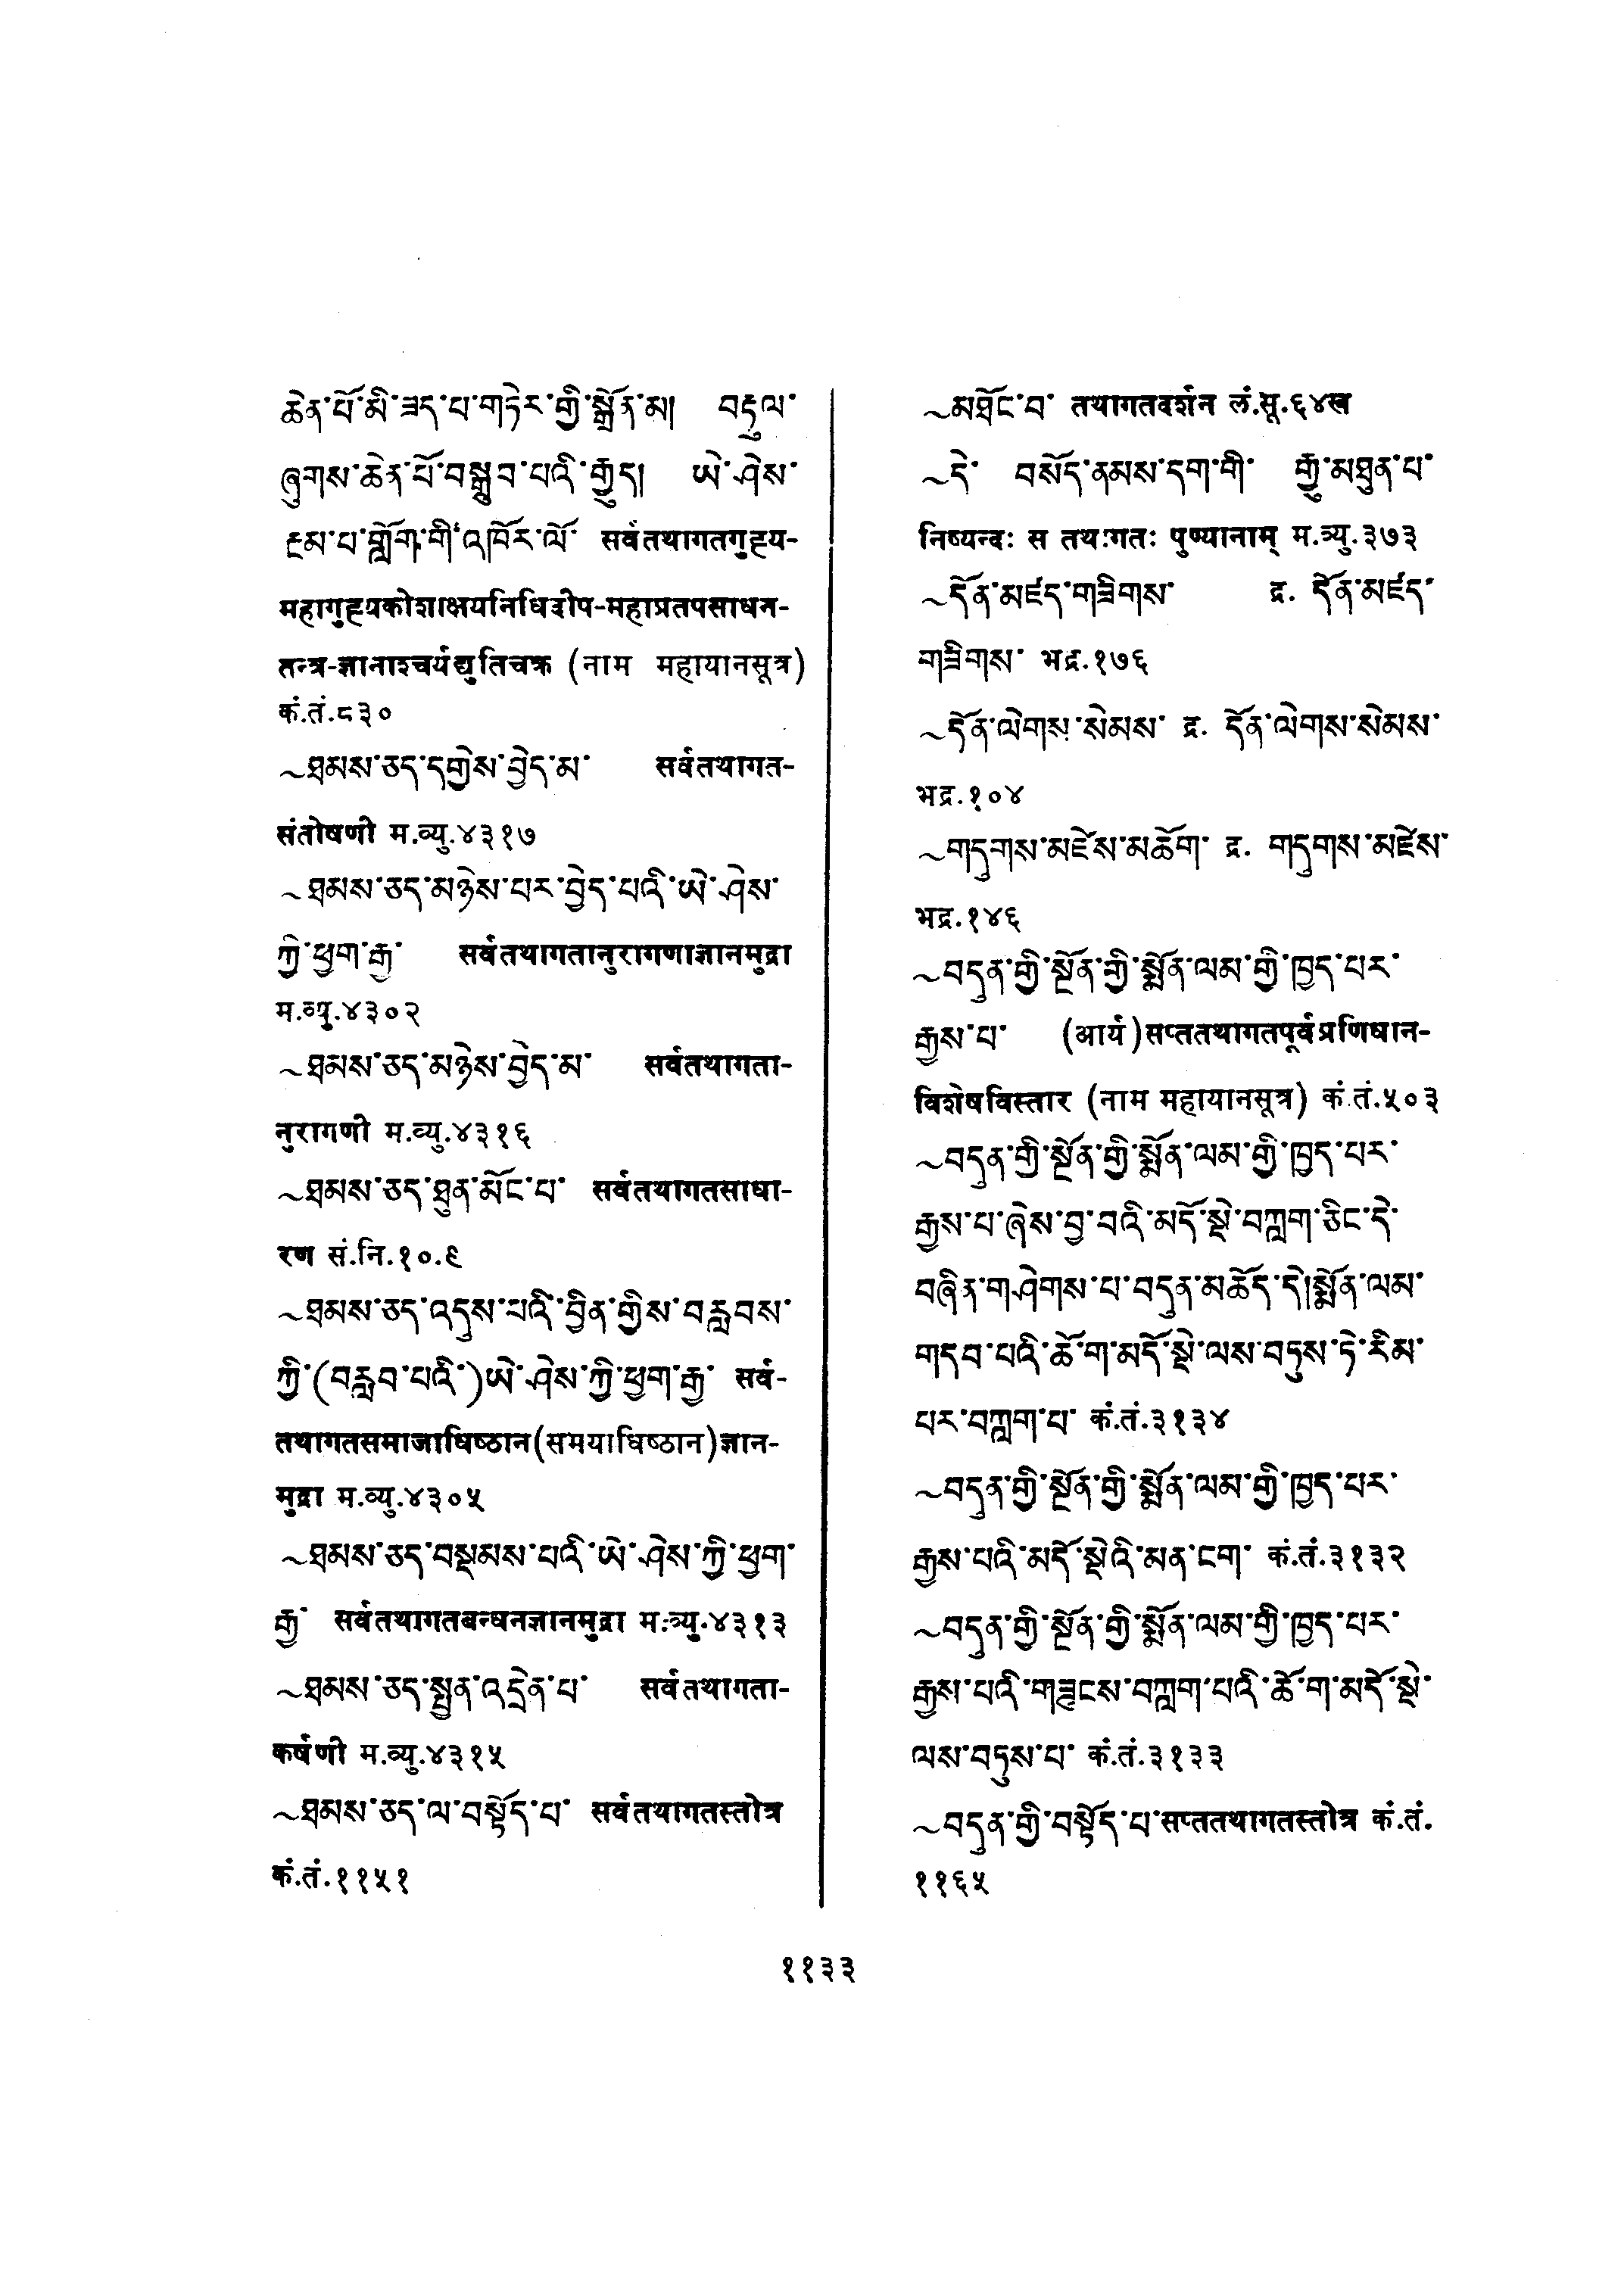 ཆེན་པོ་མི་ཟད་པ་གཏེར་གྱི་སྒྲོན་མ། བརྟུལ་
ཞུགས་ཆེན་པོ་བསྒྲུབ་པའི་རྒྱུད། ཡེ་ཤེས་
རྔམ་པ་གློག་གི་འཁོར་ལོ་ सर्वतथागतगुह्य-
महागुह्यकोशाक्षयनिधिदीप-महाप्रतपसाधन-
तन्त्र-ज्ञानाश्चर्यद्युतिचक्र (नाम महायानसूत्र)
कं.तं.८३०
~ཐམས་ཅད་དགྱེས་བྱེད་མ་ सर्वतथागत-
संतोषणी म.व्यु.४३१७
~ཐམས་ཅད་མཉེས་པར་བྱེད་པའི་ཡེ་ཤེས་
ཀྱི་ཕྱག་རྒྱ་ सर्वतथागतानुरागणाज्ञानमुद्रा
म.व्यु.४३०२
~ཐམས་ཅད་མཉེས་བྱེད་མ་ सर्वतथागता-
नुरागणी म.व्यु.४३१६
~ཐམས་ཅད་ཐུན་མོང་པ་ सर्वतथागतसाधा-
रण सं.नि.१०.९
~ཐམས་ཅད་འདུས་པའི་བྱིན་གྱིས་བརླབས་
ཀྱི་(བརླབ་པའི་)ཡེ་ཤེས་ཀྱི་ཕྱག་རྒྱ་ सर्व-
तथागतसमाजाधिष्ठान(समयाधिष्ठान)ज्ञान-
मुद्रा म.व्यु.४३०५
~ཐམས་ཅད་བསྡམས་པའི་ཡེ་ཤེས་ཀྱི་ཕྱག་
རྒྱ་ सर्वतथागतबन्धनज्ञानमुद्रा म.व्यु.४३१३
~ཐམས་ཅད་སྤྱན་འདྲེན་པ་ सर्वतथागता-
कर्षणी म.व्यु.४३१५
~ཐམས་ཅད་ལ་བསྟོད་པ་ सर्वतथागतस्तोत्र
कं.तं.११५१
~མཐོང་བ་ तथागतदर्शन लं.सू.६४ख
~དེ་ བསོད་ནམས་དག་གི་ རྒྱུ་མཐུན་པ་
निष्यन्दः स तथागतः पुण्यानाम् म.व्यु.३७३
~དོན་མཛད་གཟིགས་ द्र. དོན་མཛད་
གཟིགས་ भद्र.१७६
~དོན་ལེགས་སེམས་ द्र. དོན་ལེགས་སེམས་
भद्र.१०४
~གདུགས་མཛེས་མཆོག་ द्र. གདུགས་མཛེས་
भद्र.१४६
~བདུན་གྱི་སྔོན་གྱི་སྨོན་ལམ་གྱི་ཁྱད་པར་
རྒྱས་པ་ (आर्य)सप्ततथागतपूर्वप्रणिधान-
विशेषविस्तार (नाम महायानसूत्र) कं.तं.५०३
~བདུན་གྱི་སྔོན་གྱི་སྨོན་ལམ་གྱི་ཁྱད་པར་
རྒྱས་པ་ཞེས་བྱ་བའི་མདོ་སྡེ་བཀླག་ཅིང་དེ་
བཞིན་གཤེགས་པ་བདུན་མཆོད་དེ།སྨོན་ལམ་
གདབ་པའི་ཆོ་ག་མདོ་སྡེ་ལས་བཏུས་ཏེ་རིམ་
པར་བཀླག་པ་ कं.तं.३१३४
~བདུན་གྱི་སྔོན་གྱི་སྨོན་ལམ་གྱི་ཁྱད་པར་
རྒྱས་པའི་མདོ་སྡེའི་མན་ངག་ कं.तं.३१३२
~བདུན་གྱི་སྔོན་གྱི་སྨོན་ལམ་གྱི་ཁྱད་པར་
རྒྱས་པའི་གཟུངས་བཀླག་པའི་ཆོ་ག་མདོ་སྡེ་
ལས་བཏུས་པ་ कं.तं.३१३३
~བདུན་གྱི་བསྟོད་པ་सप्ततथागतस्तोत्र कं.तं.
११६५
११३३